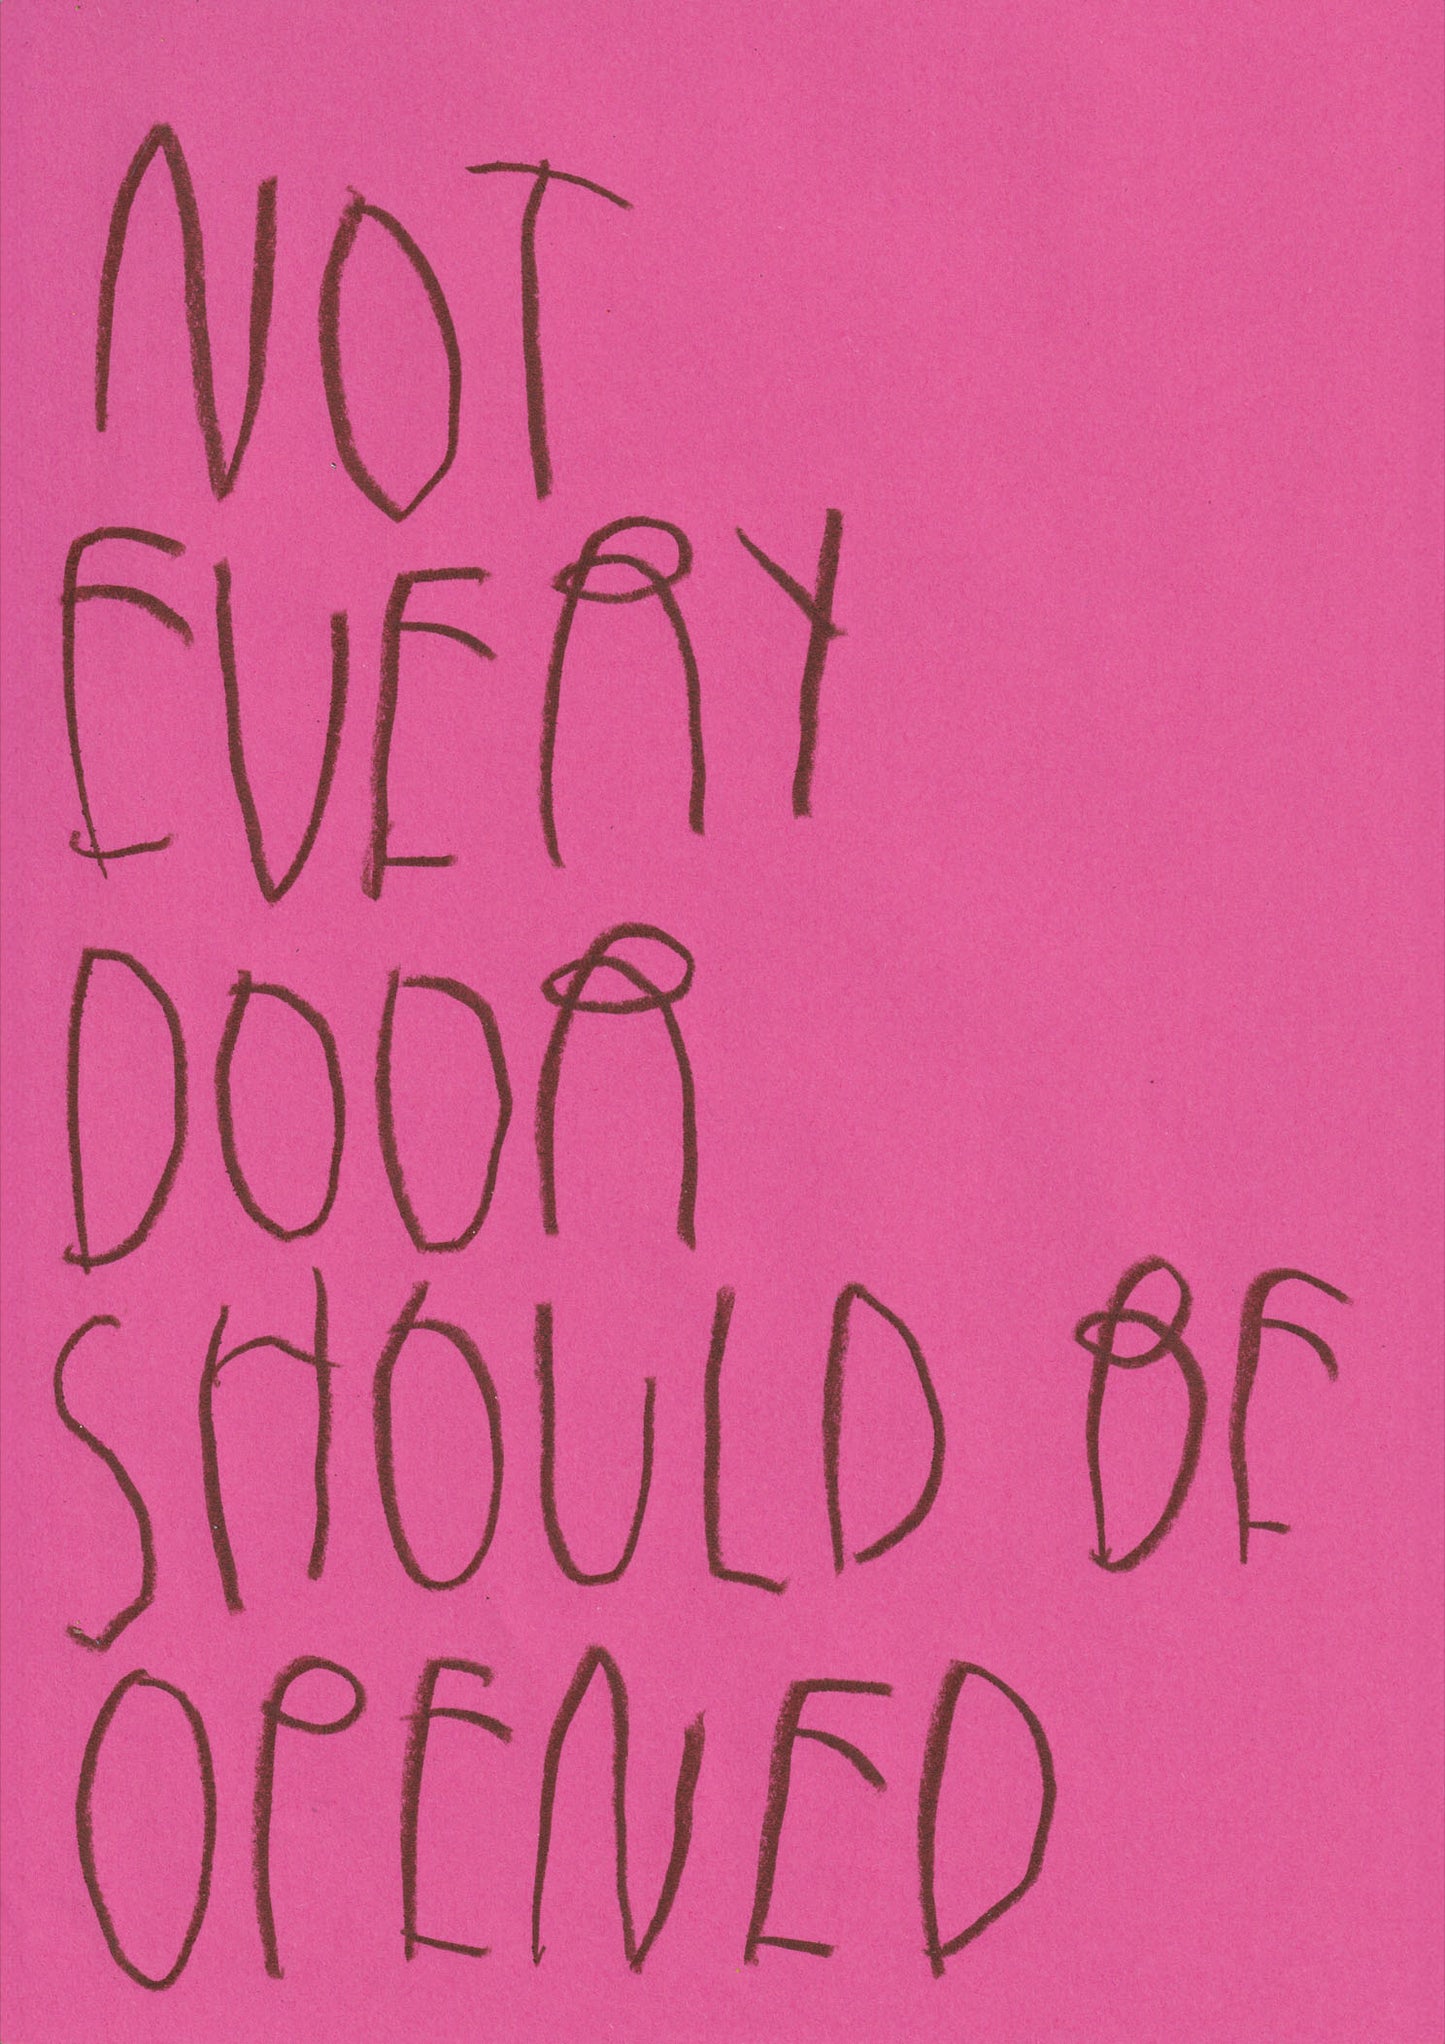 NOT
EVERY
DOOR
SHOULD BE
OPENED